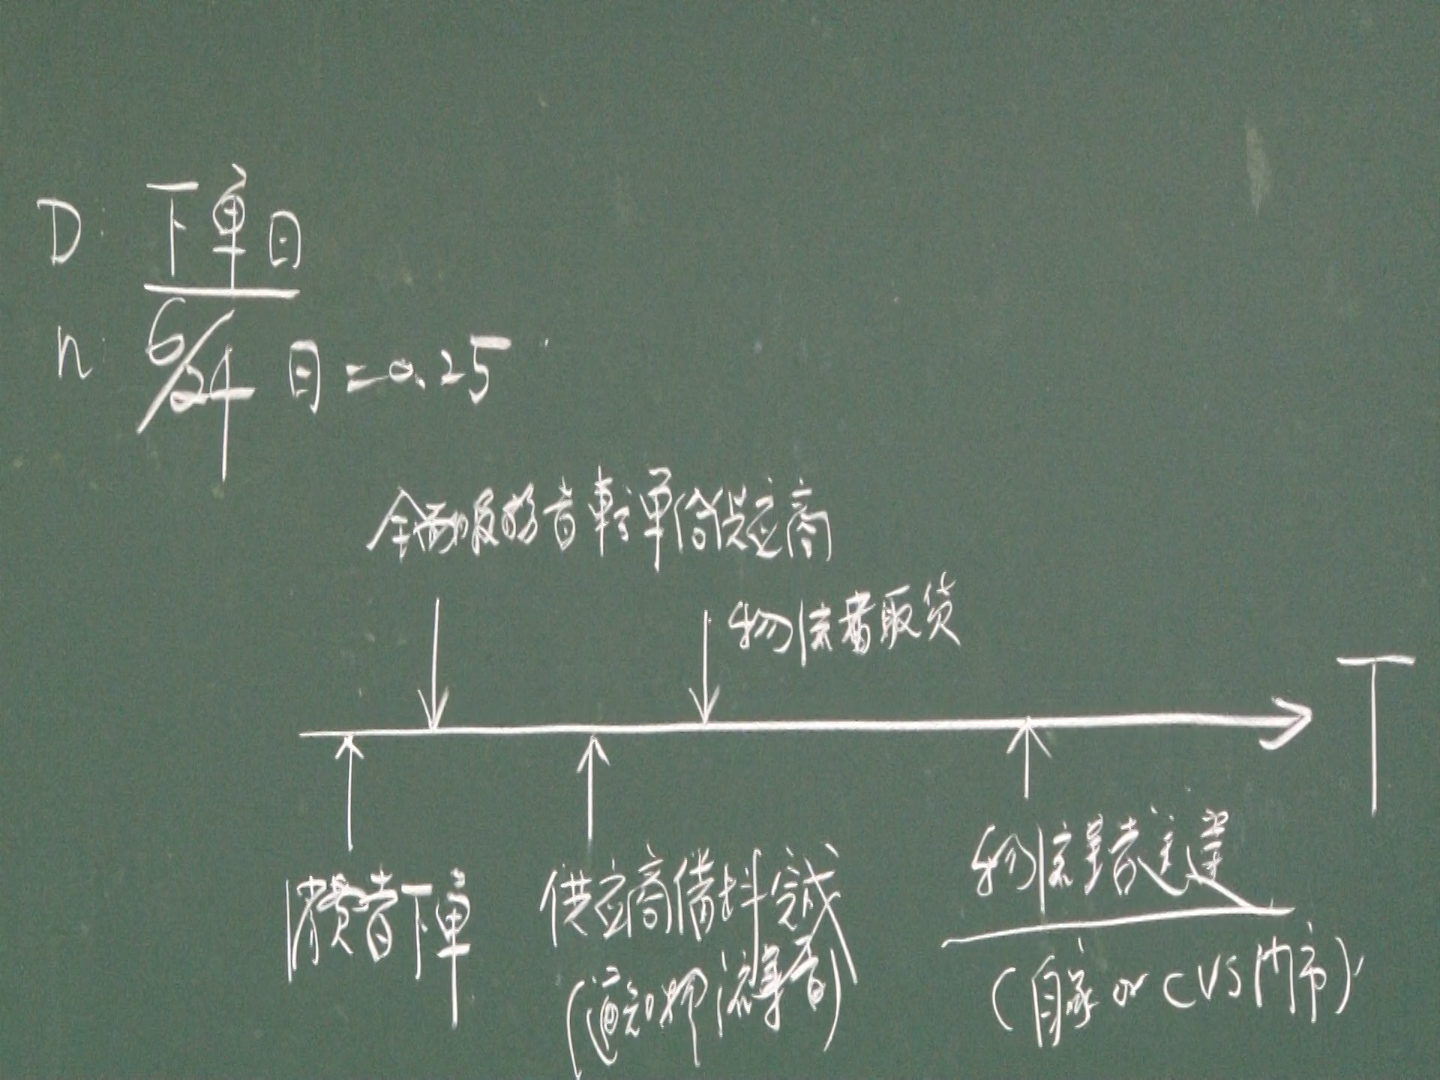 D: 下單日
n: 6/24 日=0.25
轉單給供应商
物流業者取貨
T
消費者下單
供应商備料完成
(通知物流業者)
物流業者送達
(自家 or CVS門市)